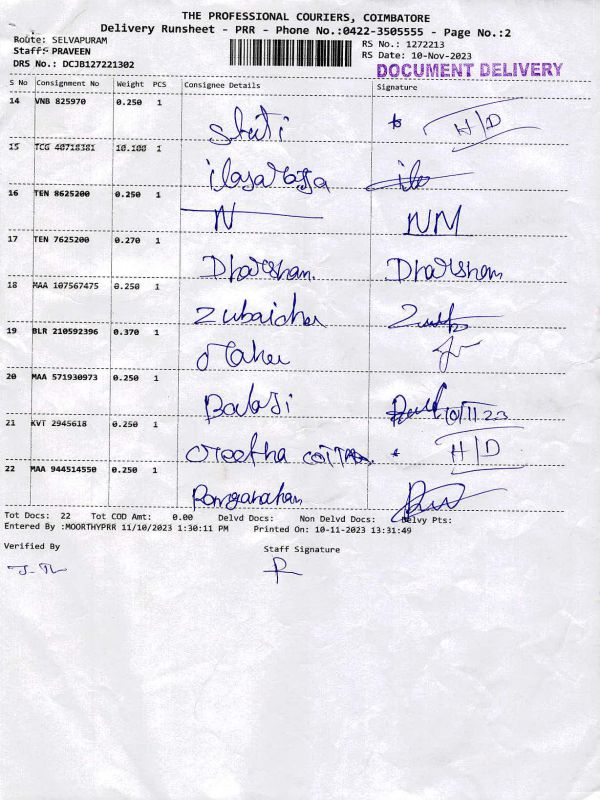 THE PROFESSIONAL COURIERS, COIMBATORE
Delivery Runsheet - PRR - Phone No.:0422-3505555 - Page No.:2
Route: SELVAPURAM
RS No.: 1272213
Staff: PRAVEEN
RS Date: 10-Nov-2023
DRS No.: DCJB127221302
DOCUMENT DELIVERY
S No Consignment No Weight PCS Consignee Details Signature
14 VNB 825970 0.250 1
H/D
15 TCG 40718381 10.100 1
16 TEN 8625200 0.250 1
N NM
17 TEN 7625200 0.270 1
Dharshan. Dharshan
18 MAA 107567475 0.250 1
Zubaidher
19 BLR 210592396 0.370 1
20 MAA 571930973 0.250 1
Balaji 10/11/23
21 KVT 2945618 0.250 1
H/D
22 MAA 944514550 0.250 1
Tot Docs: 22 Tot COD Amt: 0.00 Delvd Docs: Non Delvd Docs: Delvy Pts:
Entered By :MOORTHYPRR 11/10/2023 1:30:11 PM Printed On: 10-11-2023 13:31:49
Verified By Staff Signature